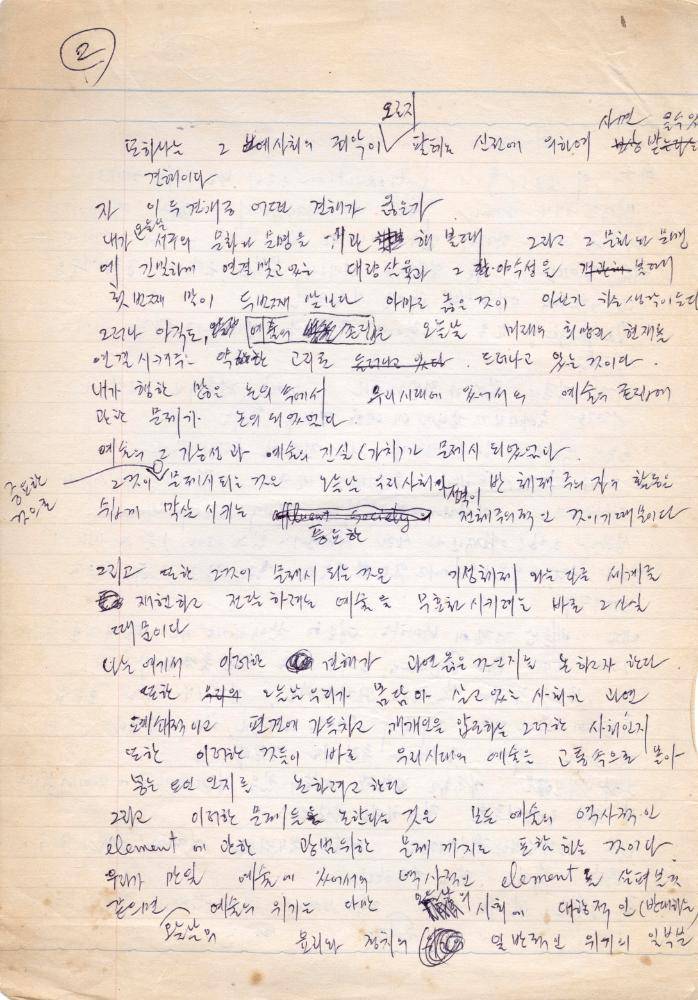 2
오로지
사면 을수있
또하나는 그 노예사회의 죄악이 말하는 신전에 의하여 받는다는
견해이다
자 이 두 견해중 어떠한 견해가 옳은가
오늘날
내가 서구의 문화나 문명을 해 볼때 그리고 그 문화나 문명
에 긴밀하게 연결맺고 있는 대량살육과 그 야수성을 볼때
첫번째 말이 두번째 말보다 아마도 옳은 것이 아닌가 하는 생각이 든다
그러나 아직도, 예술의 존재는 오늘날 미래의 희망과 현재를
연결시켜주는 약한 고리로 드러나고 있다 . 드러나고 있는 것이다 .
내가 행한 많은 논의 속에서 우리시대에 있어서의 예술의 존립에
관한 문제가 논의 되었었다
예술의 그 가능성과 예술의 진실(가치)가 문제시 되었었다 .
중요한
것으로
그것이 문제시 되는 것은 오늘날 우리사회의 전역이 반 체제 주의 자의 활동을
쉽게 말살시키는 affluent society의 전체주의적인 것이기 때문이다
풍요한
그리고 또한 그것이 문제시 되는 것은 기성체제와는 다른 세계를
재현하고 전달하려는 예술을 무효화시키려는 바로 그 사실
때문이다
나는 여기서 이러한 견해가 과연 옳은 것인지를 논하고자 한다 .
또한 우리의 오늘날 우리가 몸담아 살고 있는 사회가 과연
노예해적이고 편견에 가득차고 개개인을 압도하는 그러한 사회인지
또한 이러한 것들이 바로 우리시대의 예술을 고통속으로 몰아
넣는 요인 인지를 논하려고 한다
그리고 이러한 문제들을 논한다는 것은 모든 예술의 역사적인
element에 관한 광범위한 문제 까지도 포함하는 것이다
우리가 만일 예술에 있어서의 역사적인 element를 살펴볼것
같으면 예술의 위기는 다만 오늘날의 사회에 대항적인(반대하는)
오늘날의
윤리와 정치의 일반적인 위기의 일부분